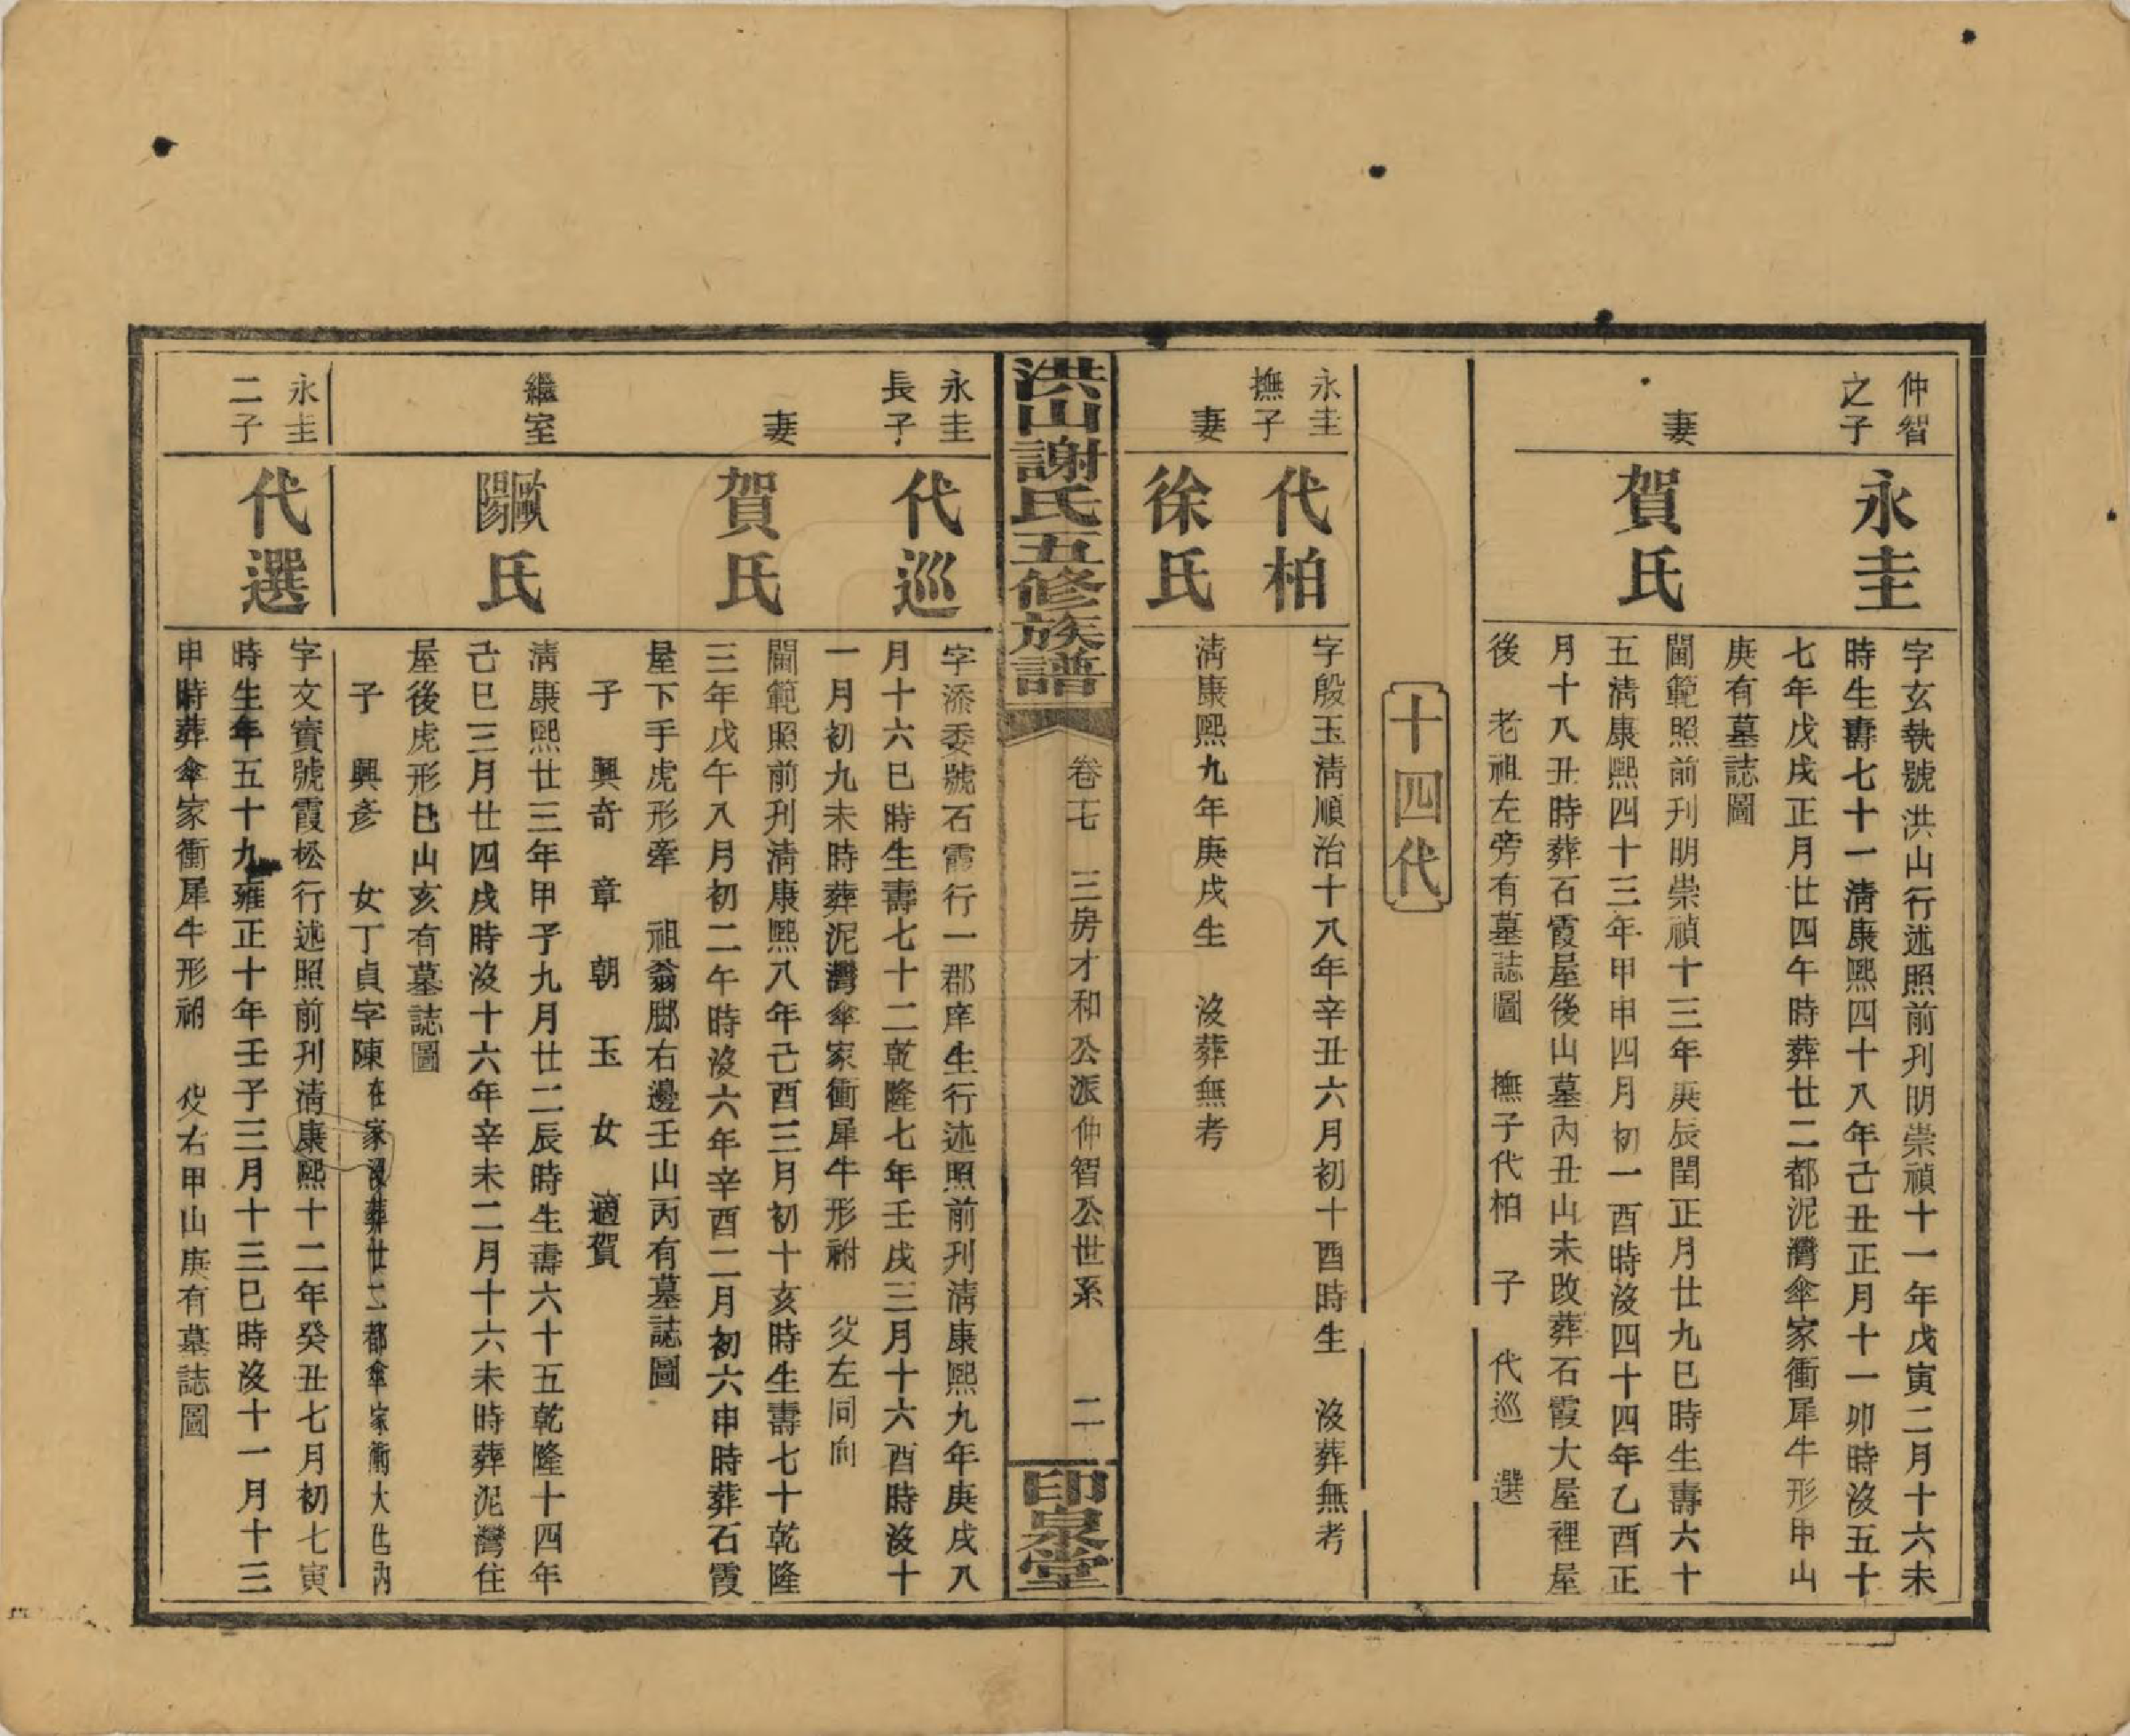 仲智之子
永圭
字玄執號洪山行述照前刋明崇禎十一年戊寅二月十六未
時生壽七十一清康熙四十八年己丑正月十一卯時沒五十
七年戊戌正月廿四午時葬廿二都泥灣傘家衝犀牛形甲山
庚有墓誌圖
妻
賀氏
閫範照前刋明崇禎十三年庚辰閏正月廿九巳時生壽六十
五清康熙四十三年甲申四月初一酉時沒四十四年乙酉正
月十八丑時葬石霞屋後山墓內丑山未改葬石霞大屋裡屋
後 老祖左旁有墓誌圖 撫子代柏 子 代巡 選
十四代
永圭撫子
代柏
字殷玉清順治十八年辛丑六月初十酉時生 沒葬無考
妻
徐氏
清康熙九年庚戌生 沒葬無考
洪山謝氏五修族譜
卷七 三房才和公派仲智公世系 二
印泉堂
永圭長子
代巡
字添委號石霞行一郡庠生行述照前刋清康熙九年庚戌八
月十六巳時生壽七十二乾隆七年壬戌三月十六酉時沒十
一月初九未時葬泥灣傘家衝犀牛形祔 父左同向
妻
賀氏
閫範照前刋清康熙八年己酉三月初十亥時生壽七十乾隆
三年戊午八月初二午時沒六年辛酉二月初六申時葬石霞
屋下手虎形牽 祖翁腳右邊壬山丙有墓誌圖
子 興奇 章 朝 玉 女 適賀
繼室
歐陽氏
清康熙廿三年甲子九月廿二辰時生壽六十五乾隆十四年
己巳三月廿四戌時沒十六年辛未二月十六未時葬泥灣住
屋後虎形巳山亥有墓誌圖
子 興彥 女丁貞字陳在家沒葬廿二都傘家衝大坵內
永圭二子
代選
字文賓號霞松行述照前刋清康熙十二年癸丑七月初七寅
時生年五十九雍正十年壬子三月十三巳時沒十一月十三
申時葬傘家衝犀牛形祔 父右甲山庚有墓誌圖